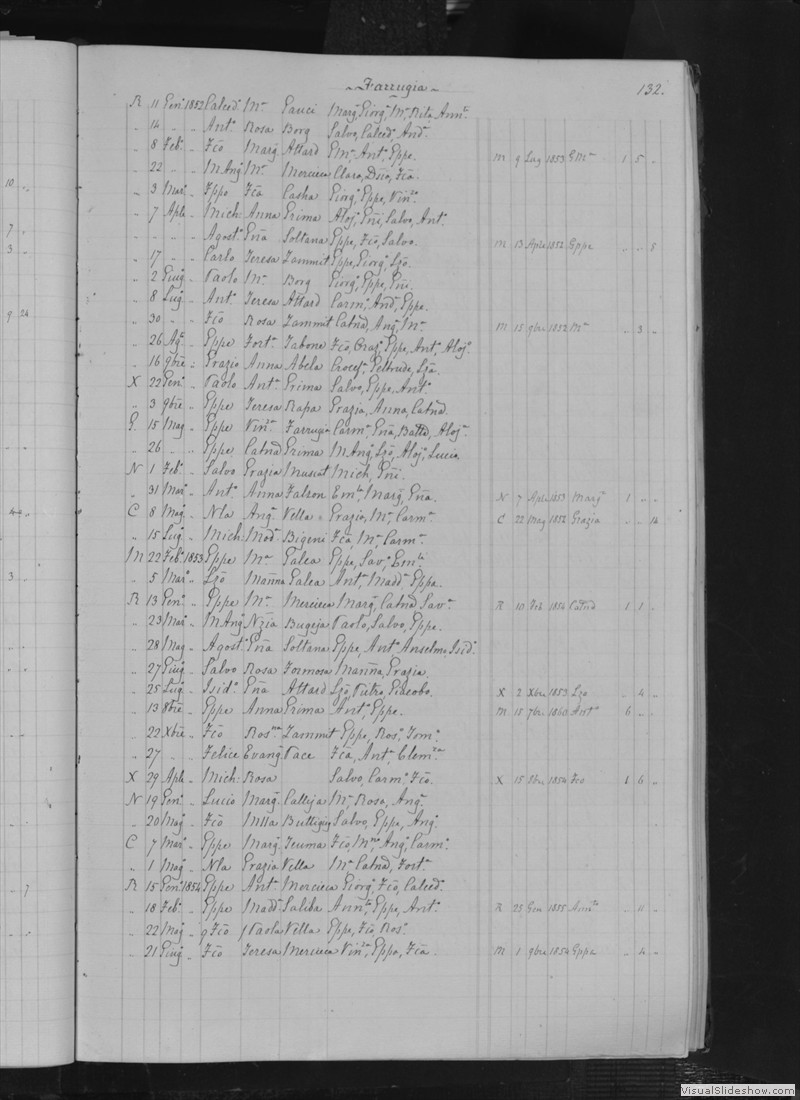 Farrugia 132.
R 11 Gen.º 1852 Calced. M.ª Cauci Marg.ª Giorg.º, M.ª Rita, Ann.ta
" 14 " " Ant.º Rosa Borg Salvo, Calced. And.ª
" 8 Feb.º " Fcõ Marg.ª Attard Em.º, Ant.º, Gppe. M 9 Lug 1853 G M.ª 1 5 "
" 22 " " M Ang.º M.ª Mercieca Clara, Fcã.
" 3 Mar.º " Gppe Fcã Casha Giorg.º, Gppe, Vin.za
" 7 Aple " Mich: Anna Grima Aloj.º, Salvo, Ant.º
" " " " Agost.º Eñã Soltana Gppe, Fcõ, Salvo. M 13 Aple 1852 Gppe " " 5
" 17 " " Carlo Teresa Zammit Gppe, Giorg.º, Lzõ.
" 2 Giug. " Paolo M.ª Borg Giorg.º, Gppe,
" 8 Lug.º " Ant.º Teresa Attard Carm.º, And.ª, Gppe.
" 30 " " Fcõ Rosa Zammit Catnã, Ang.º, M.ª M 15 9bre 1852 M.ª " 3 "
" 26 Ag.º " Gppe Fort.ª Tabone Fcõ, Graz.º, Gppe, Ant.º, Aloj.º
" 16 9bre " Grazio Anna Abela Crocef.ª Geltrude, Lzã.
X 22 Gen.º " Paolo Ant.ª Grima Salvo, Gppe, Ant.º
" 3 9bre " Gppe Teresa Rapa Grazia, Anna, Catnã.
G. 15 Mag " Gppe Vin.za Farrugia Carm.º, Eñã, Batta, Aloj.ª
" 26 " " Gppe Catnã Grima M Ang.º, Lzõ, Aloj.º, Lucia
N 1 Feb.º " Salvo Grazia Muscat Mich.,
" 31 Mar.º " Ant.º Anna Falzon Em.la, Marg.ª, Eñã. N 7 Aple 1853 Marg.ª 1 " "
C 8 Mag.º " Nla Ang.ª Vella Grazia, M.ª, Carm.ª C 22 Mag 1852 Grazia " " 14
" 15 Lug.º " Mich: Mod. Bigeni Fcã, M.ª Carm.ª
M 22 Feb.º 1853 Gppe M.ª Galea Gppe, Sav.ª, Em.la
" 5 Mar.º " Lzõ Mariña Galea Ant.º, Madd.ª Gppa.
R 13 Gen.º " Gppe M.ª Mercieca Marg.ª, Catnã, Sav.ª R 10 Feb 1854 Catnã 1 1 "
" 23 Mar.º " M Ang.º Nzia Bugeja Paolo, Salvo, Gppe.
" 28 Mag " Agost.º Eñã Soltana Gppe, Ant.º, Anselmo, Isid.º
" 27 Giug " Salvo Rosa Formosa Mariña, Grazia
" 25 Lug.º " Isid.º Eñã Attard Lzõ, Pietro, Giacobo. X 2 Xbre 1853 Lzo " 4 "
" 13 8bre " Gppe Anna Grima Ant.º, Gppe. M 15 7bre 1860 Ant.º 6 " "
" 22 Xbre " Fcõ Ros.na Zammit Gppe, Ros.º,
" 27 " " Felice Evang. Pace Fcã, Ant.º, Clem.za
X 29 Aple " Mich: Rosa Salvo, Carm.º, Fcõ. X 15 8bre 1854 Fco 1 6 "
N 19 Gen.º " Lucio Marg.ª Calleja M.ª, Rosa, Ang.ª
" 20 Mag " Fcõ Nlla Buttigieg Salvo, Gppe, Ang.º
C 7 Mar.º " Gppe Marg.ª Teuma Fcõ, Ang.º, Carm.º
" 1 Mag " Nla Grazia Vella M.ª Catnã, Fort.ª
R 15 Gen.º 1854 Gppe Ant.ª Mercieca Giorg.º, Fcõ, Calced.º
" 18 Feb.º " Gppe Madd.ª Saliba Ann.ta, Gppe, Ant.º R 23 Gen 1855 Ann.ta " 11 "
" 22 Mag " Fcõ Paola Vella Gppe, Fcõ, Ros.º
" 21 Giug " Fcõ Teresa Mercieca Vin.za, Gppa, Fcã. M 1 9bre 1854 Gppa " 4 "
10
7
3
9 24
3
7
VisualSlideshow.com